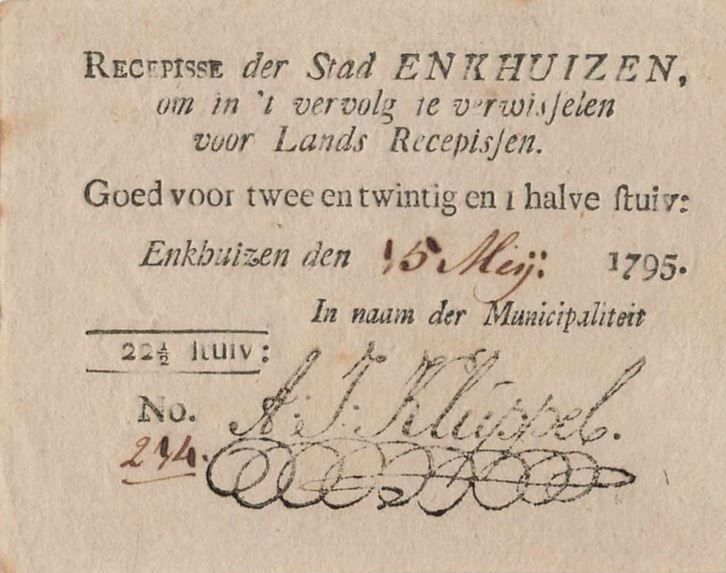 RECEPISSE der Stad ENKHUIZEN,
om in 't vervolg te verwisſelen
voor Lands Recepisſen.
Goed voor twee en twintig en 1 halve ſtuiv:
Enkhuizen den 15 Meij: 1795.
In naam der Municipaliteit
22½ ſtuiv:
No. A: J: Kluppel.
214.